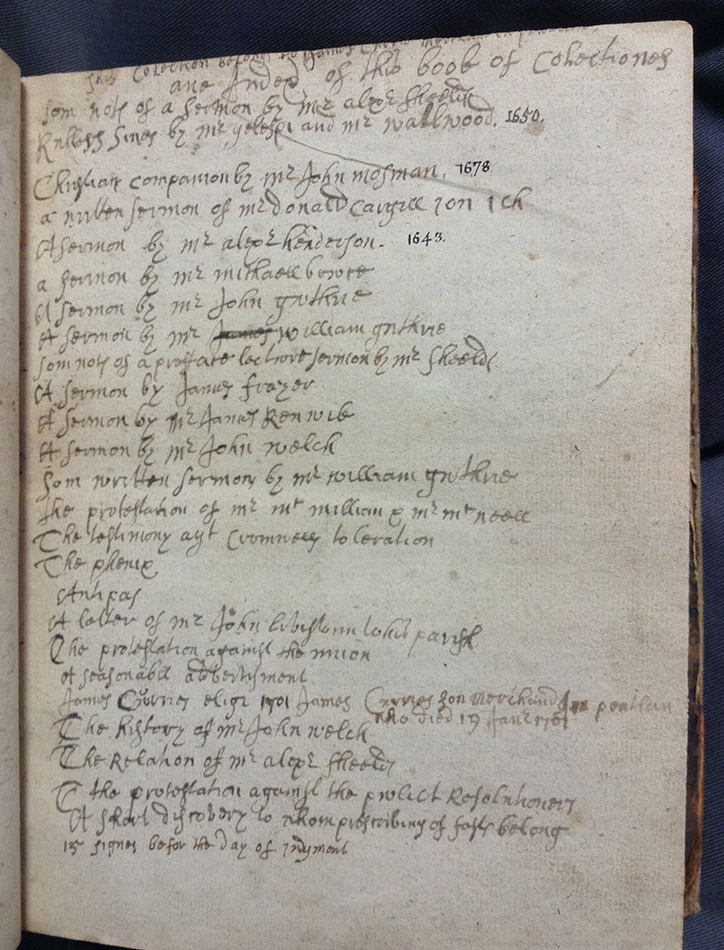 This Colection belongs to James Currie merchant in pentland
ane Index of this book of Colectiones
som nots of a sermon by mr alexr sheelds
Rulless Sines by mr gelespi and mr wallwood. 1650.
Christian companion by mr John mosman. 1678.
a written sermon of mr donald Cargill
A sermon by mr alexr henderson. 1643.
a sermon by mr michaell bruce
A sermon by mr John guthrie
A sermon by mr william guthrie
som nots of a preface lecture sermon by mr sheelds
A sermon by James frazer
A sermon by mr James Renwik
A sermon by mr John welch
Som written sermons by mr william guthrie
the protestation of mr mc millian & mr mc neell
The testimony agt Cromwells toleration
The phenix
Antipas
A letter of mr John livistoun to his parish
The protestation against the union
A seasonable advertisment
James Curries eligi 1701 James Curries son merchand in pentlan
who died 19 Janr 1701
The history of mr John welch
The Relation of mr alexr sheelds
The protestation against the publict Resolutioners
A short discovery to whom prescribing of fasts belong
15 signes befor the day of Judgment